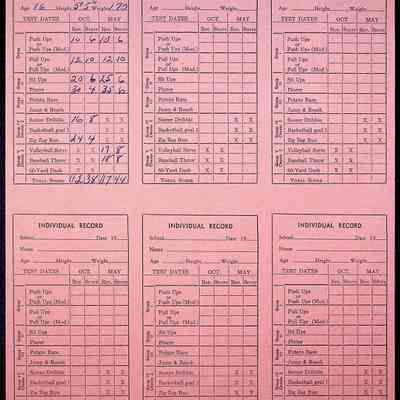 Age 16 Height 5'5" Weight 170
Age Height Weight
Age Height Weight
TEST DATES OCT. MAY
Rec. Score Rec. Score
Push Ups 10 6 13 6
or
Push Ups (Mod.)
Pull Ups 12 10 12 10
or
Pull Ups (Mod.)
Sit Ups 20 6 25 6
Potato Race
Jump & Reach
Soccer Dribble 16 8 X X
Basketball goal X X
Zig Zag Run 24 4 X X
Volleyball Serve X X 17 8
Baseball Throw X X 18 8
60-Yard Dash X X
TOTAL SCORE 112 38 117 44
TEST DATES OCT. MAY
Rec. Score Rec. Score
Push Ups
or
Push Ups (Mod.)
Pull Ups
or
Pull Ups (Mod.)
Sit Ups
Potato Race
Jump & Reach
Soccer Dribble X X
Basketball goal X X
Zig Zag Run X X
Volleyball Serve X X
Baseball Throw X X
60-Yard Dash X X
TOTAL SCORE
TEST DATES OCT. MAY
Rec. Score Rec. Score
Push Ups
or
Push Ups (Mod.)
Pull Ups
or
Pull Ups (Mod.)
Sit Ups
Potato Race
Jump & Reach
Soccer Dribble X X
Basketball goal X X
Zig Zag Run X X
Volleyball Serve X X
Baseball Throw X X
60-Yard Dash X X
TOTAL SCORE
INDIVIDUAL RECORD
School Date 19
Name
Age Height Weight
TEST DATES OCT. MAY
Rec. Score Rec. Score
Push Ups
or
Push Ups (Mod.)
Pull Ups
or
Pull Ups (Mod.)
Sit Ups
Potato Race
Jump & Reach
Soccer Dribble X X
Basketball goal X X
Zig Zag Run X X
INDIVIDUAL RECORD
School Date 19
Name
Age Height Weight
TEST DATES OCT. MAY
Rec. Score Rec. Score
Push Ups
or
Push Ups (Mod.)
Pull Ups
or
Pull Ups (Mod.)
Sit Ups
Potato Race
Jump & Reach
Soccer Dribble X X
Basketball goal X X
Zig Zag Run X X
INDIVIDUAL RECORD
School Date 19
Name
Age Height Weight
TEST DATES OCT. MAY
Rec. Score Rec. Score
Push Ups
or
Push Ups (Mod.)
Pull Ups
or
Pull Ups (Mod.)
Sit Ups
Potato Race
Jump & Reach
Soccer Dribble X X
Basketball goal X X
Zig Zag Run X X